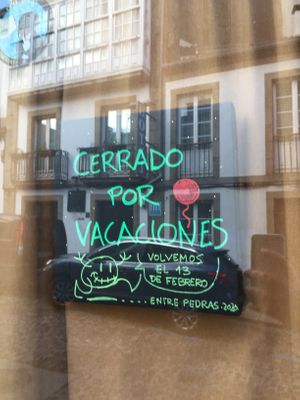 CERRADO
POR
VACACIONES
VOLVEMOS
EL 13
DE FEBRERO
ENTRE PEDRAS.